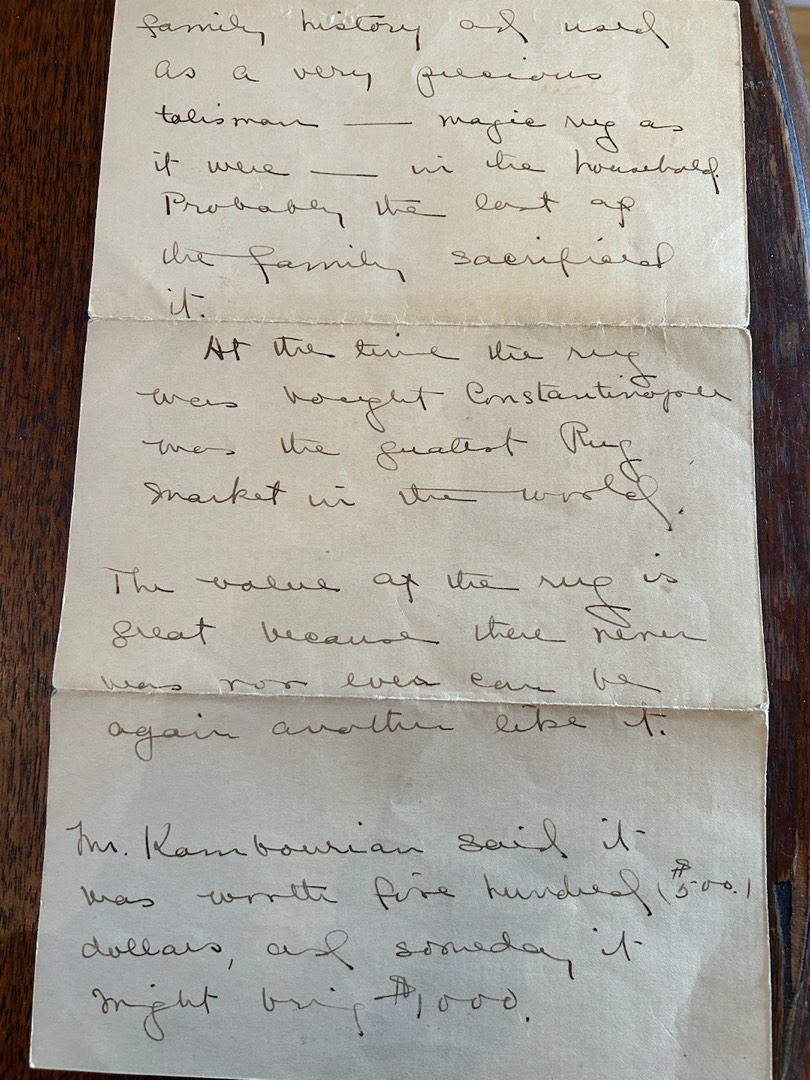 family history and used
as a very precious
talisman — magic rug as
it were — in the household.
Probably the last of
the family sacrificed
it.
At the time the rug
was bought Constantinople
was the greatest Rug
market in the world.
The value of the rug is
great because there never
was nor ever can be
again another like it.
Mr. Kambourian said it
was worth five hundred ($500.)
dollars, and someday it
might bring $1000.